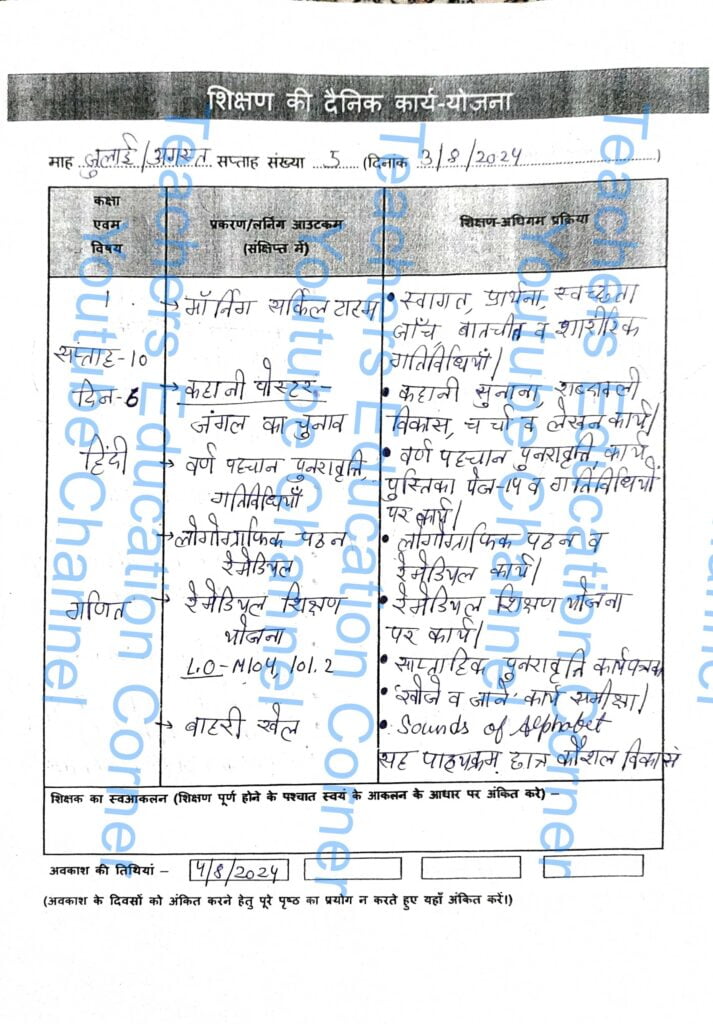 शिक्षण की दैनिक कार्य-योजना
माह जुलाई/अगस्त सप्ताह संख्या 5 (दिनांक 3/8/2024)
कक्षा एवम विषय
प्रकरण/लर्निंग आउटकम (संक्षिप्त में)
शिक्षण-अधिगम प्रक्रिया
1
सप्ताह-10
दिन-6
हिंदी
गणित
→ मॉर्निंग सर्किल टाइम
→ कहानी पोस्टर:-
जंगल का चुनाव
→ वर्ण पहचान पुनरावृत्ति,
गतिविधियाँ
→ लोगोग्राफिक पठन
रेमेडियल
→ रेमेडियल शिक्षण
योजना
L.O-M104, 101.2
→ बाहरी खेल
• स्वागत, प्रार्थना, स्वच्छता
जाँच, बातचीत व शारीरिक
गतिविधियाँ।
• कहानी सुनाना, शब्दावली
विकास, चर्चा व लेखन कार्य।
• वर्ण पहचान पुनरावृत्ति, कार्य
पुस्तिका पेज-14 व गतिविधियों
पर कार्य।
• लोगोग्राफिक पठन व
रेमेडियल कार्य।
• रेमेडियल शिक्षण योजना
पर कार्य।
• साप्ताहिक पुनरावृत्ति कार्यपत्रक
• 'खोजें व जानें' कार्य समीक्षा।
• Sounds of Alphabet
सह पाठ्यक्रम, छात्र कौशल विकास
शिक्षक का स्वआकलन (शिक्षण पूर्ण होने के पश्चात स्वयं के आकलन के आधार पर अंकित करे) –
अवकाश की तिथियां – 4/8/2024
(अवकाश के दिवसों को अंकित करने हेतु पूरे पृष्ठ का प्रयोग न करते हुए यहाँ अंकित करें।)
Teachers Education Corner
Youtube Channel
Teachers Education Corner
Youtube Channel
Teachers Education Corner
Youtube Channel